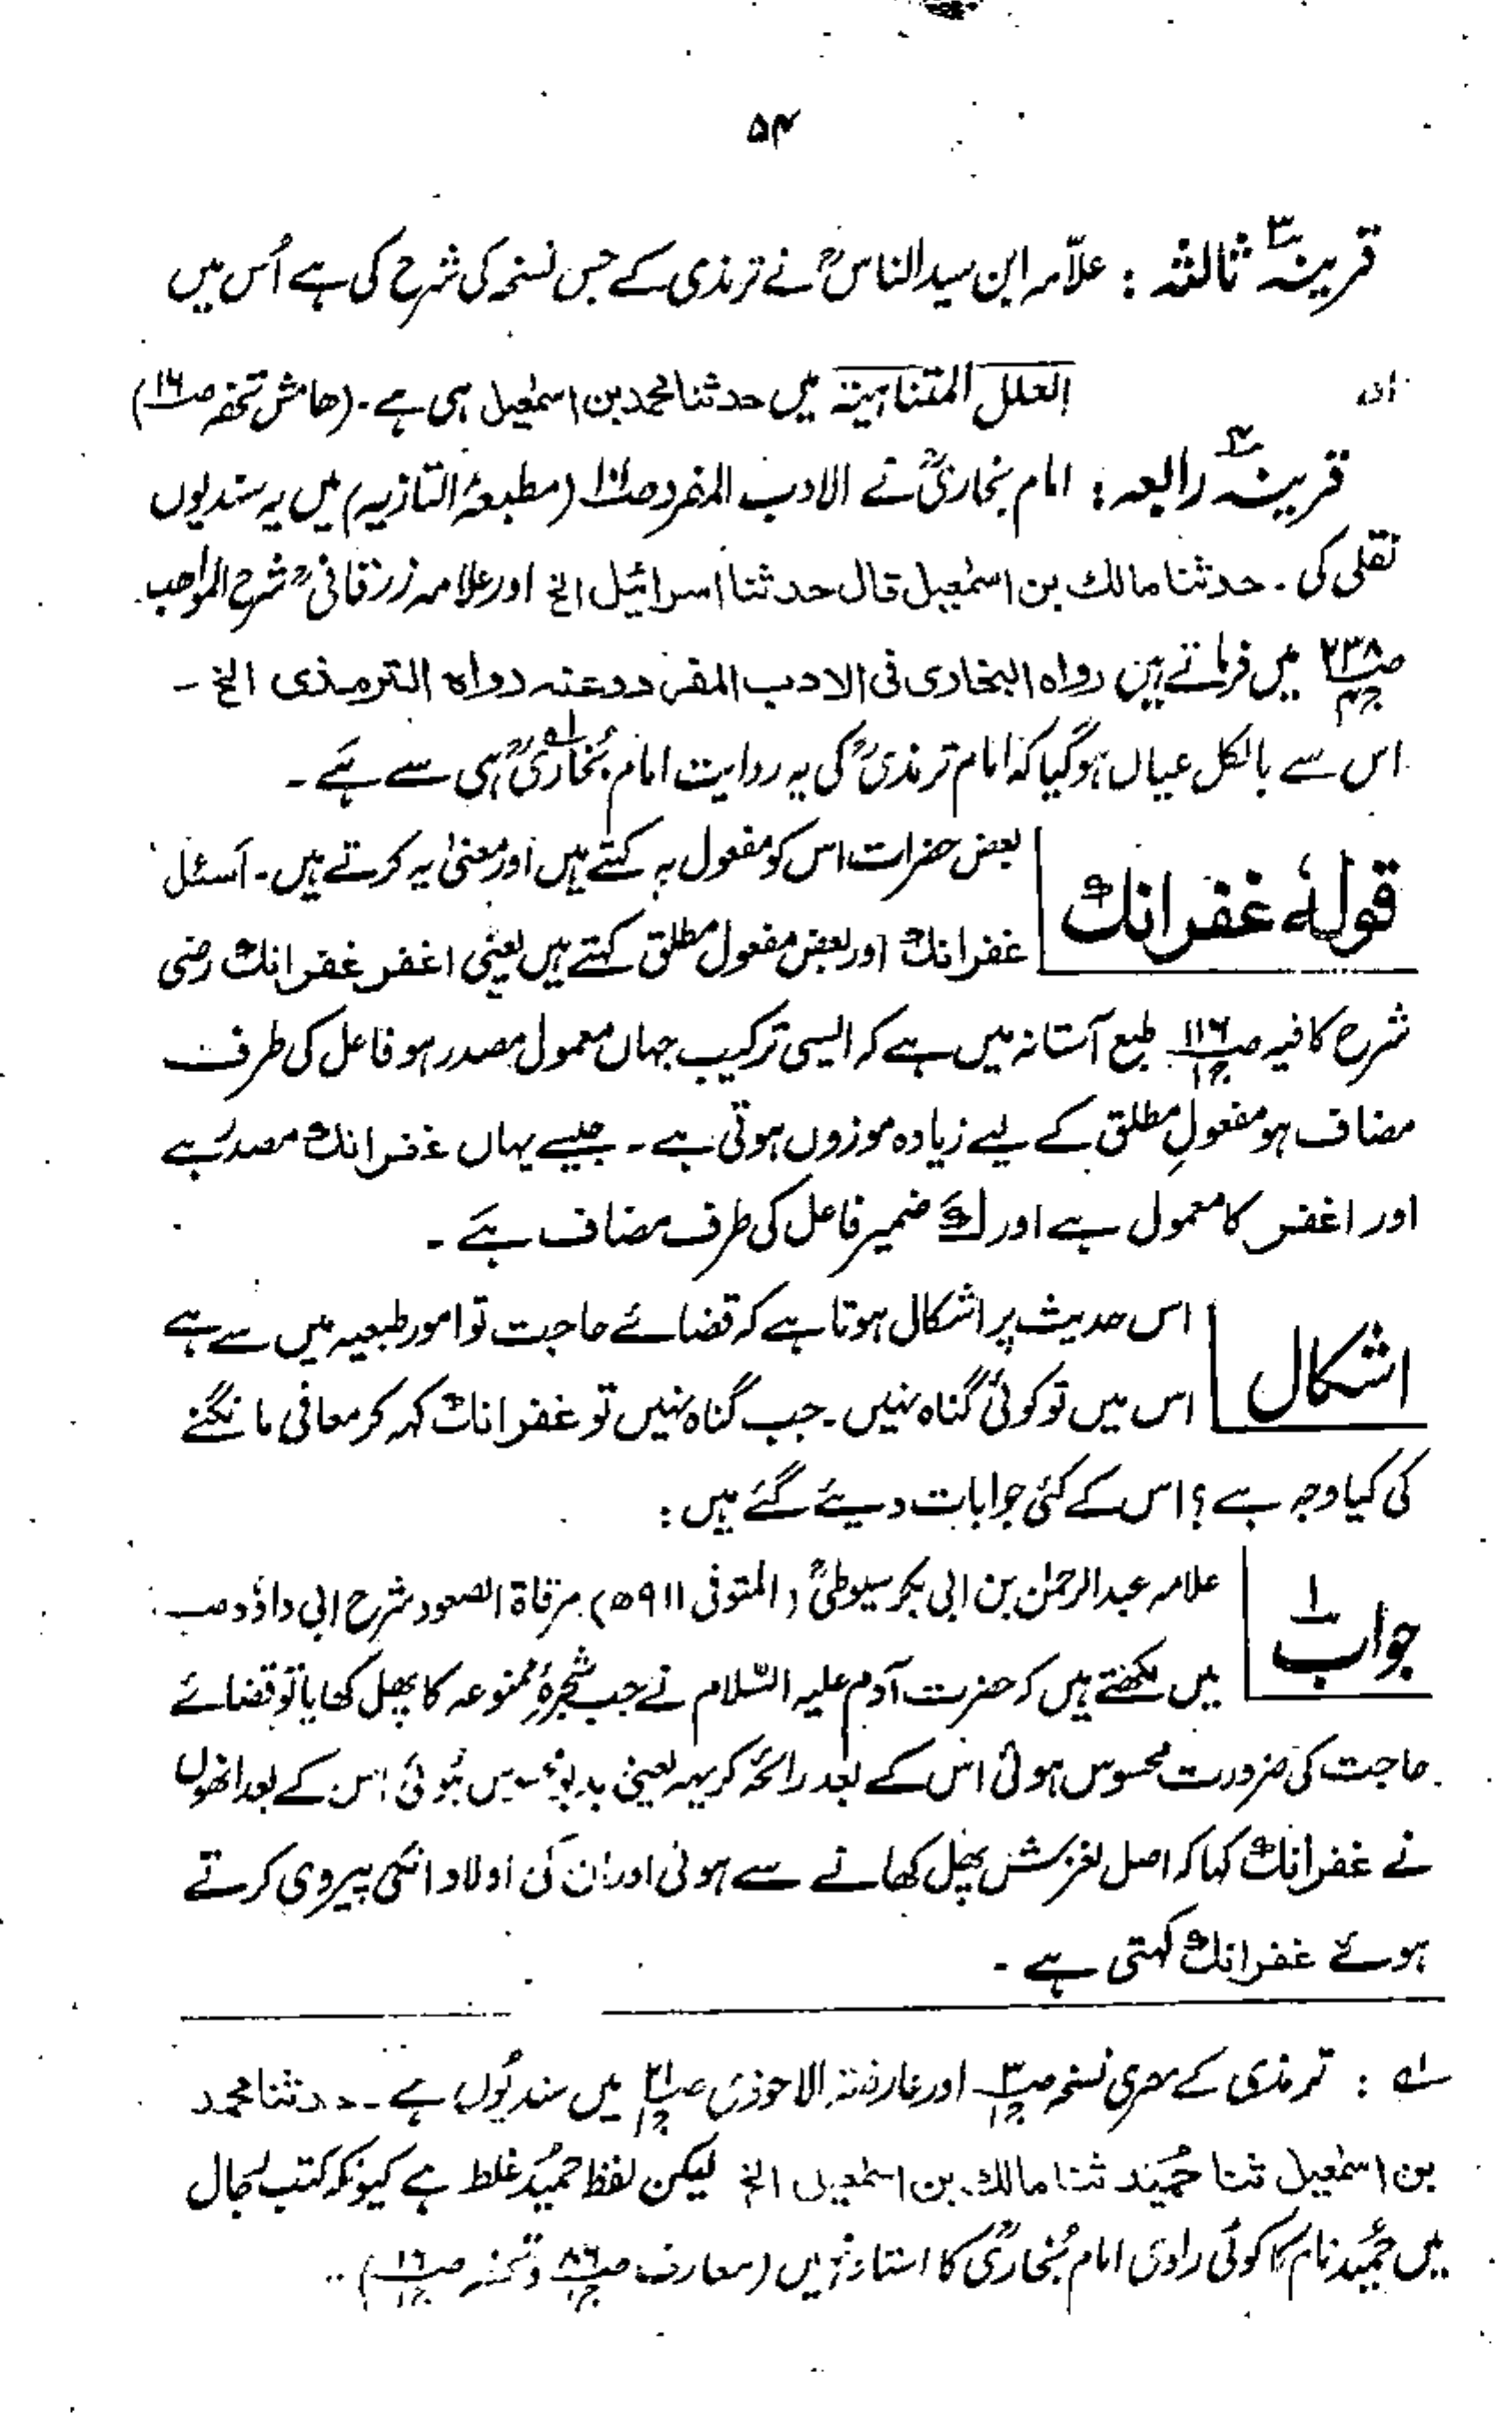 ۵۴
قرینہ۳ ثالثہ : علّامہ ابن سید الناسؒ نے ترمذی کے جس نسخہ کی شرح کی ہے اُس میں
العلل المتناہیۃ میں حدثنا محمد بن اسمٰعیل ہی ہے۔ (ھامش تحفہ ص۱۶)
قرینہ۴ رابعہ : امام بخاریؒ نے الادب المفرد (مطبعۃ التازیہ) میں یہ سند یوں
نقلی کی ۔ حدثنا مالک بن اسمٰعیل قال حدثنا اسرائیل الخ اور علامہ زرقانیؒ شرح المواھب
ص۲۳۸ ج۴ میں فرماتے ہیں رواہ البخاری فی الادب المفرد وعنہ رواہ الترمذی الخ ۔
اس سے بالکل عیاں ہوگیا کہ امام ترمذیؒ کی یہ روایت امام بُخاریؒ۱ ہی سے ہَے ۔
قولہٗ غفرانک
بعض حضرات اس کو مفعول بہ کہتے ہیں اور معنیٰ یہ کرتے ہیں۔ اَسئل
غفرانک اور بعض مفعول مطلق کہتے ہیں یعنی اغفر غفرانک رضی
شرح کافیہ ص۱۱۶ ج۱ طبع آستانہ میں ہے کہ ایسی ترکیب جہاں معمول مصدر ہو فاعل کی طرف
مضاف ہو مفعولِ مطلق کے لیے زیادہ موزوں ہوتی ہے ۔ جیسے یہاں غفرانک مصدر ہے
اور اغفر کا معمول ہے اور ک ضمیر فاعل کی طرف مضاف ہَے ۔
اشکال
اس حدیث پر اشکال ہوتا ہے کہ قضائے حاجت تو امور طبعیہ میں سے ہے
اس میں تو کوئی گناہ نہیں ۔ جب گناہ نہیں تو غفرانک کہہ کر معافی مانگنے
کی کیا وجہ ہے ؟ اس کے کئی جوابات دیئے گئے ہیں :
جواب ۱
علامہ عبدالرحمٰن بن ابی بکر سیوطیؒ (المتوفی ۹۱۱ھ) مرقاۃ الصعود شرح ابی داؤد ص
میں لکھتے ہیں کہ حضرت آدم علیہ السّلام نے جب شجرۂ ممنوعہ کا پھل کھایا تو قضائے
حاجت کی ضرورت محسوس ہوئی اس کے بعد رائحۂ کریہہ یعنی بدبو محسوس ہُوئی اس کے بعد انھوں
نے غفرانک کہا کہ اصل لغزش پھل کھانے سے ہوئی اور ان کی اولاد انکی پیروی کرتے
ہوئے غفرانک کہتی ہے ۔
۱ : ترمذی کے مصری نسخہ ص۳ ج۱ اور عارضۃ الاحوذی ص۲۱ ج۱ میں سند یُوں ہے ۔ حدثنا محمد
بن اسمٰعیل ثنا حُمَید ثنا مالک بن اسمٰعیل الخ لیکن لفظ حمیُد غلط ہے کیونکہ کتب رجال
میں حُمَید نام کا کوئی راوی امام بُخاریؒ کا استاد نہیں (معارف ص۸۶ ج۱ و تحفہ ص۱۶ ج۱) ..